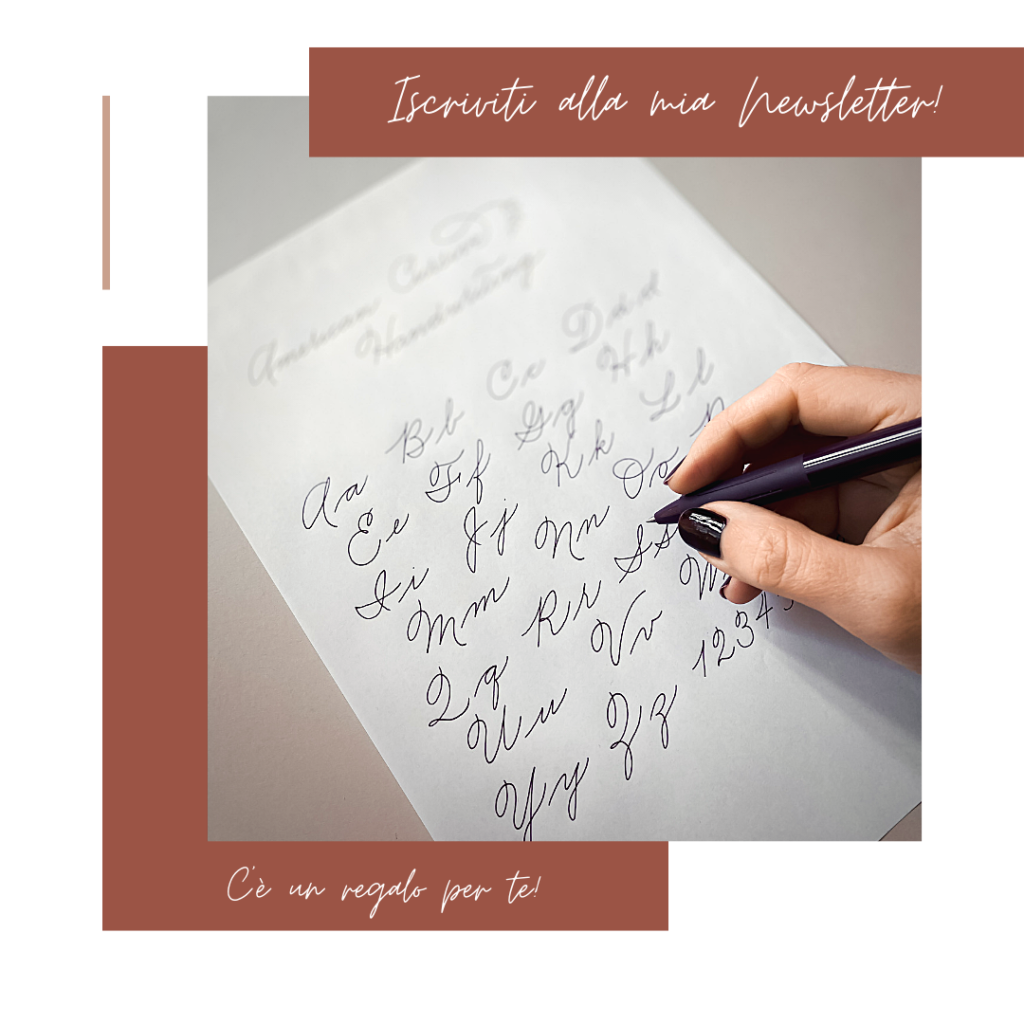 Iscriviti alla mia Newsletter!
American Cursive
Handwriting
Aa Bb Cc Dd
Ee Ff Gg Hh
Ii Jj Kk Ll
Mm Nn Oo
Qq Rr Ss
Uu Vv W
Yy Zz 1234
C'è un regalo per te!